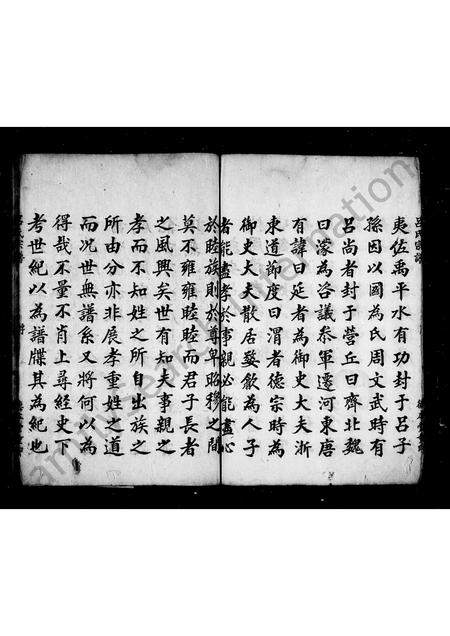 夷佐禹平水有功封于吕子
孫因以國為氏周文武時有
吕尚者封于營丘曰齊北魏
曰濛為咨議叅軍遷河東唐
有諱曰延者為御史大夫浙
東道節度曰渭者德宗時為
御史大夫散居婺歙為人子
者能盡孝於事親必能盡心
於睦族則於尊卑昭穆之間
莫不雍雍睦睦而君子長者
之風興矣世有知夫事親之
孝而不知姓之所自出族之
所由分亦非展孝重姓之道
而况世無譜系又將何以為
得哉不量不肖上尋經史下
考世紀以為譜牒其為紀也